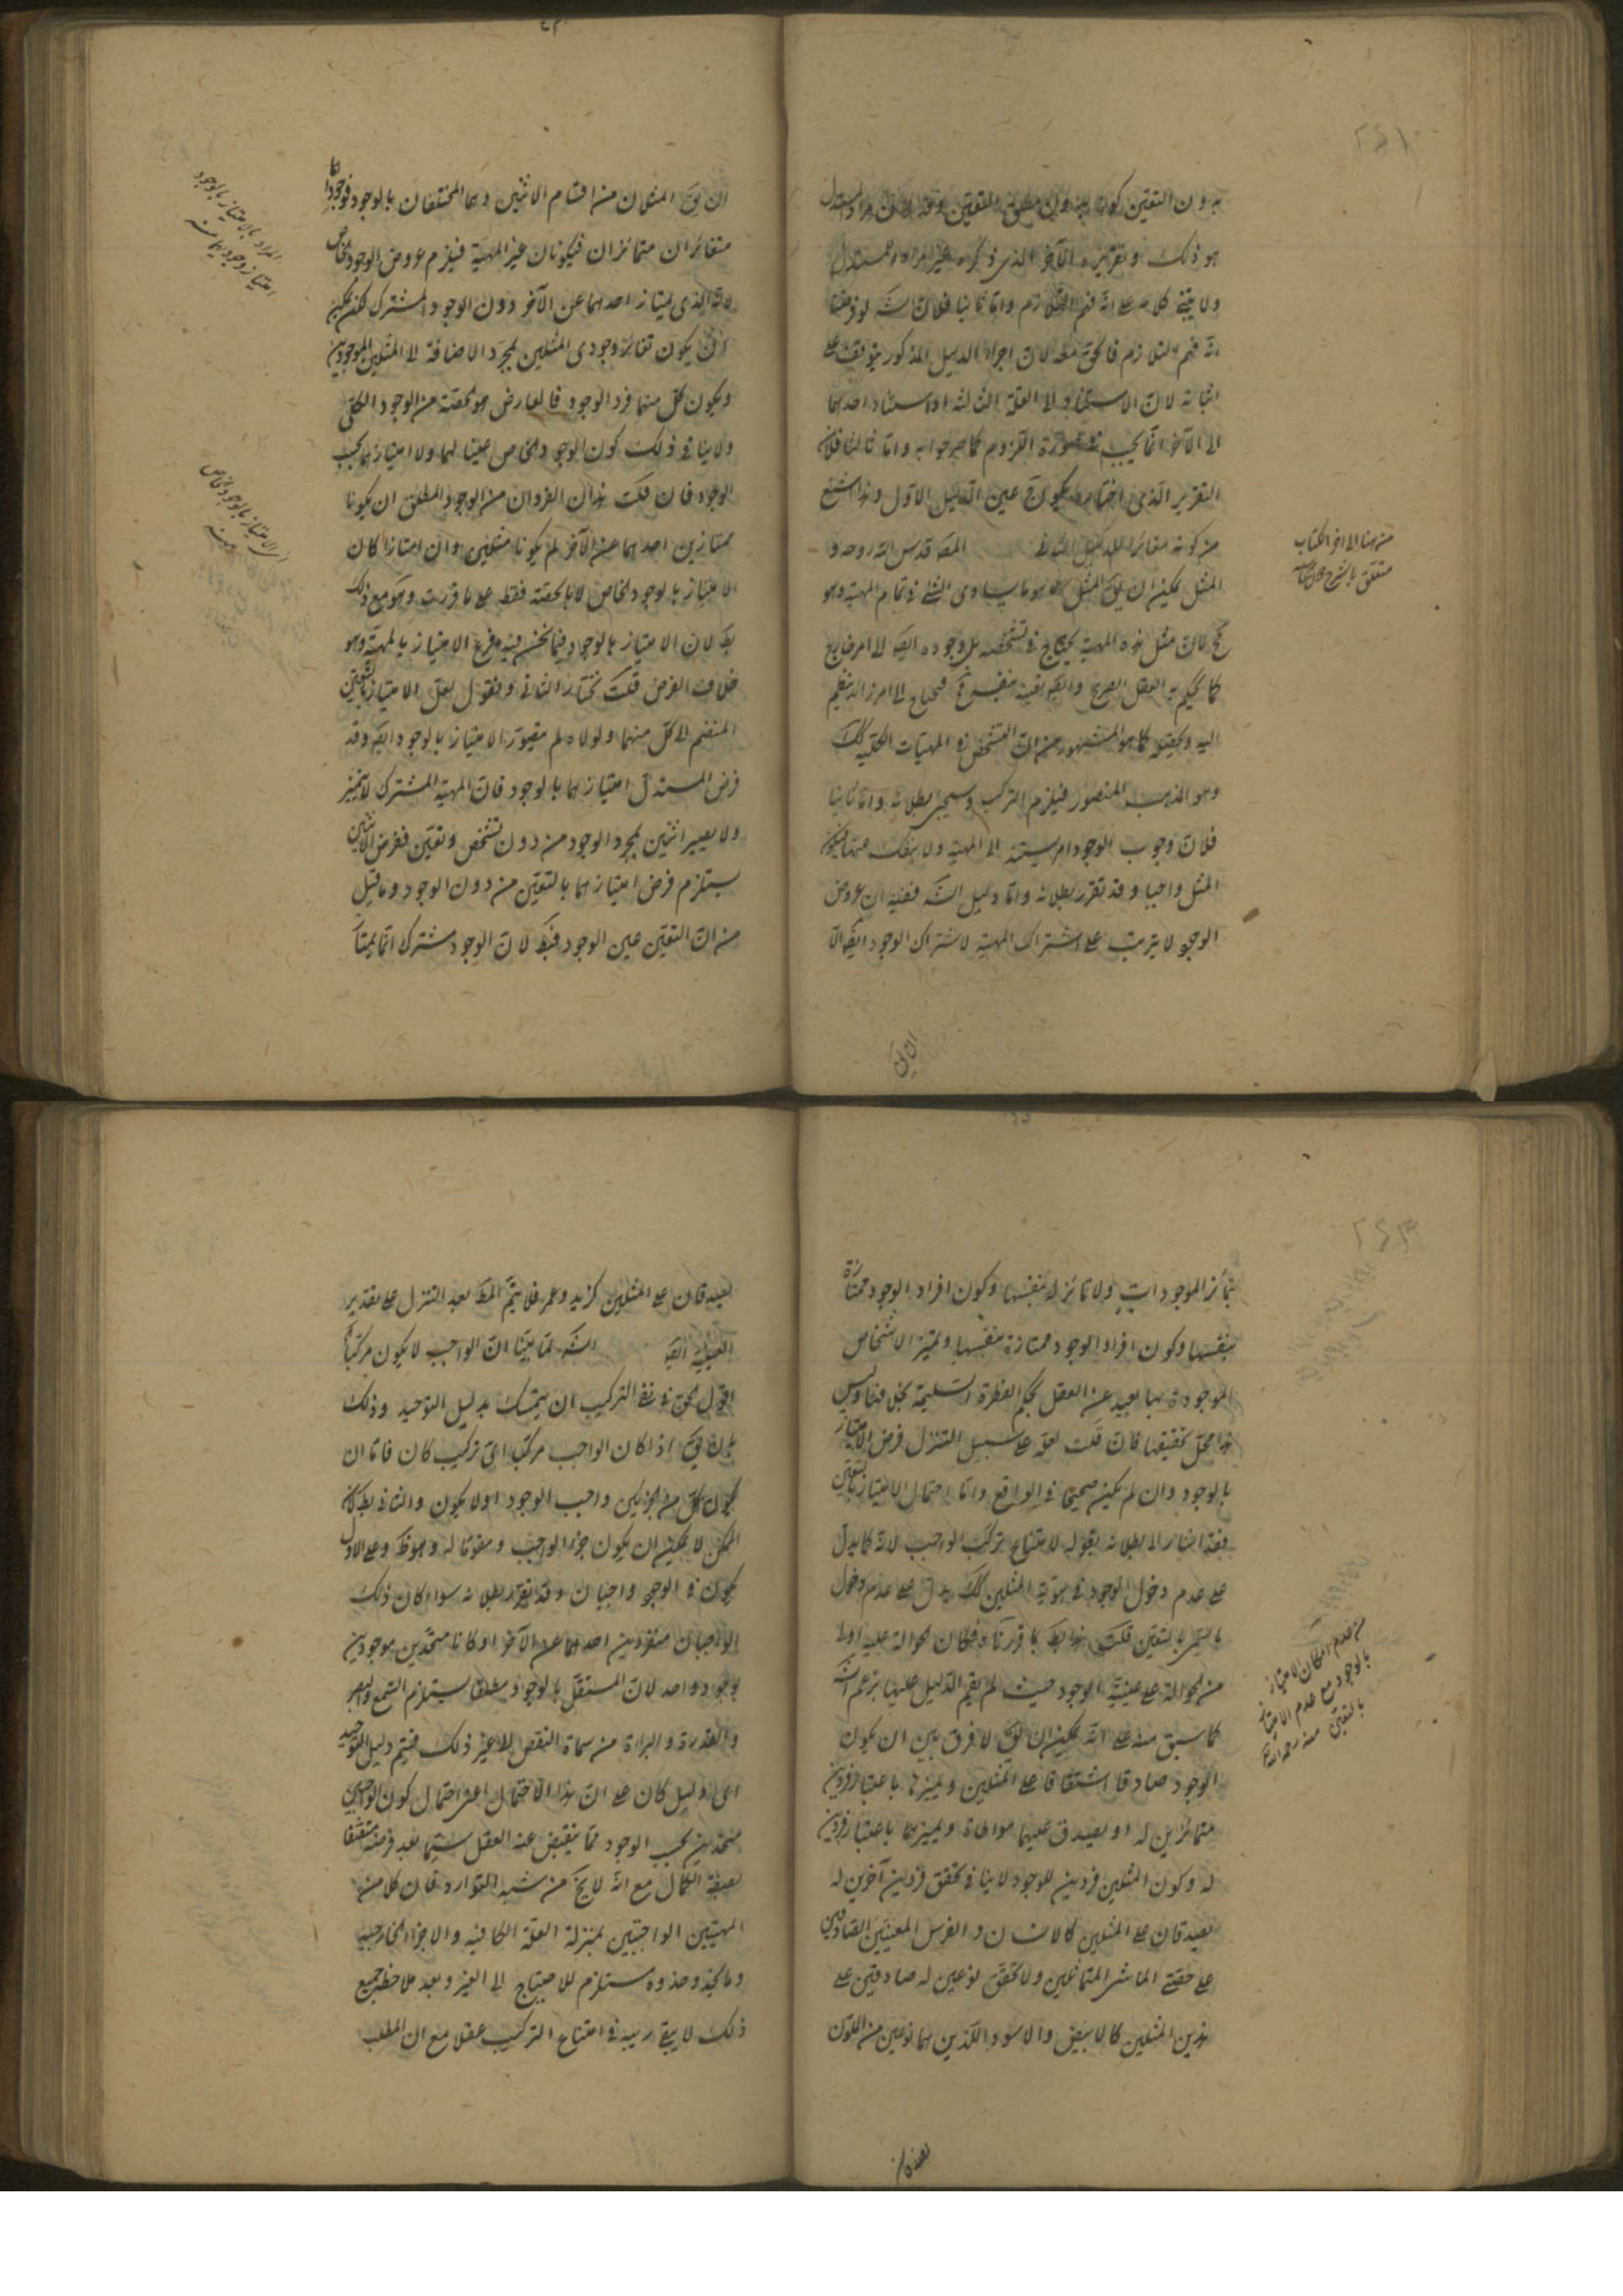 بدون التعيّن كونه بدون مطلق التعيّن وقد
هو ذلك وتقريره الآخر الذى ذكره غير مراد للمستدل
ولا يبتنى كلامه على انه فهم التلازم وامّا ثانيا فلانّ الشه لو فرضنا
انّه فهم التلازم فالحق معه لانّ اجراء الدليل المذكور يتوقف على
اثباته لانّ الاستناد الى العلّة الثالثة او استناد احدهما
الى الآخر انّما يجب فى صورة اللزوم كما صرحوا به وامّا ثالثا فلانّ
التقرير الذى اختاره يكون ح عين الدليل الاوّل وهذا اشنع
من كونه مغائرا للدليل الثانى المصه قدس الله روحه و
المثل يمكن ان يق المثل هو ما يساوى الشئ فى تمام المهيّة وهو
مح لانّ مثل هذه المهيّة يحتاج فى تشخصه بل وجوده ايضه الى امر خارج
كما يحكم به العقل الصريح
اليه وكيف كما هو المشهور من انّ التشخص فى المهيّات الكليّة كك
وهو المذهب المنصور فيلزم التركيب وسيجئ بطلانه وامّا ثانيا
فلانّ وجوب الوجود امر يستند الى المهيّة ولا ينفك عنها فيكون
المثل واجبا وقد تقرر بطلانه وامّا دليل الشه ففيه ان عروض
الوجود لا يترتب على اشتراك المهيّة لاشتراك الوجود ايضه الّا
ان يق
من هنا الى آخر الكتاب
متعلق بالشرح
ان يق المثلان من اقسام الاثنين وهما المختلفان بالوجود فوجوداهما
متغائران متمائزان فيكونان غير المهيّة فيلزم عروض الوجود الخاص
لانّه الذى يمتاز احدهما عن الآخر دون الوجود المشترك لكن يمكن
ان يكون تغائر وجودى المثلين بمجرّد الاضافة الى المثلين الموجودين
ويكون كلّ منهما فرد الوجود فالعارض هو حصّته من الوجود الكلّى
ولا ينافى ذلك كون الوجود الخاص عينا لهما ولا امتيازهما بحسب
الوجود فان قلت هذان الفردان من الوجود المطلق ان يكونا
ممتازين احدهما عن الآخر لم يكونا مثلين وان امتازا كان
الامتياز بالوجود الخاص لا بالحصّة فقط على ما قررت وهو مع ذلك
بط لانّ الامتياز بالوجود فيما نحن فيه فرع الامتياز بالمهيّة وهو
خلاف الفرض قلت نختار الثانى ونقول لعلّ الامتياز بالتعيّن
المنضم الى كلّ منهما ولولاه لم يتصوّر الامتياز بالوجود ايضه وقد
فرض المستدل امتيازهما بالوجود فانّ المهيّة المشتركة لا يتميز
ولا يصير اثنين بمجرد الوجود من دون تشخص وتعيّن ففرض الاثنين
يستلزم فرض امتيازهما بالتعيّن من دون الوجود وما قيل
من انّ التعيّن عين الوجود فبط لانّ الوجود مشترك انّما يمتاز
المراد بالامتياز بالوجود
امتياز وجوديهما منه
اى الامتياز بالوجود الخاص
منه
بتمائز الموجودات ولا تمائز له بنفسها وكون افراد الوجود ممتازة
بنفسها وكون افراد الوجود ممتازة بنفسها وتميّز الاشخاص
الموجودة بها بعيد عن العقل بحكم الفطرة السليمة بخلافها وليس
هذا محلّ تحقيقها فان قلت لعلّه على سبيل التنزل فرض الامتياز
بالوجود وان لم يكن صحيحا فى الواقع وامّا احتمال الامتياز بالتعيّن
فقد اشار الى بطلانه بقوله لامتناع تركب الواجب لانّه كما يدلّ
على عدم دخول الوجود فى هوية المثلين كك يدلّ على عدم دخول
ما يتميّز بالتعيّن قلت هذا بط بما قررناه فكان الحوالة عليه اولى
من الحوالة على عينيّة الوجود حيث لم يقم الدليل عليها بزعم الشه
كما سبق منه على انّه يمكن ان يق لا فرق بين ان يكون
الوجود صادقا اشتقاقا على المثلين ويميزها باعتبار فردين
متمائزين له او يصدق عليهما مواطاة ويميزهما باعتبار فردين
له وكون المثلين فردين للوجود لا ينافى تحقق فردين آخرين له
يصدقان على المثلين كالانسان والفرس المعينين الصادقين
على حصّتى الماشى المتماثلين ولا تحقّق نوعين له صادقين على
هذين المثلين كالابيض والاسود اللذين هما نوعين من اللون
يصدقان
من عدم امكان الامتياز
بالوجود مع عدم الامتياز
بالتعيّن منه رحمه الله
يصدقان على المثلين كزيد وعمر فلا يتمّ المط بعد التنزل على تقدير
العينيّة ايضه الشه لما بيّنا انّ الواجب لا يكون مركّبا
اقول الحق فى نفى التركيب ان يتمسك بدليل التوحيد وذلك
بان يق اذا كان الواجب مركّبا اىّ تركيب كان فامّا ان
يكون كلّ من الجزئين واجب الوجود او لا يكون والثانى بط لانّ
الممكن لا يمكن ان يكون جزء الواجب ومقوّما له وهو ظ وعلى الاول
يكون فى الوجود واجبان وقد تقرّر بطلانه سواء كان ذلك
الواجبان منفردين احدهما عن الآخر او كانا متحدّين موجودين
بوجود واحد لانّ المستقلّ بالوجود مطلقا يستلزم السمع والبصر
والقدرة والبراءة من سماة النقص الى غير ذلك فيتم دليل التوحيد
اىّ دليل كان على انّ هذا الاحتمال اعنى احتمال كون الواجبين
متحدين بحسب الوجود ممّا ينقبض عنه العقل سيّما بعد فرضه متصفا
بصفة الكمال مع انّه لا يخ من شبه التوارد فان كلا من
المهيّتين الواجبتين بمنزلة العلّة الكافية والاجزاء الخارجية
وما يحذو حذوه مستلزم للاحتياج الى الغير وبعد ملاحظة جميع
ذلك لا يبقى ريبة فى امتناع التركيب عقلا مع ان المطلب